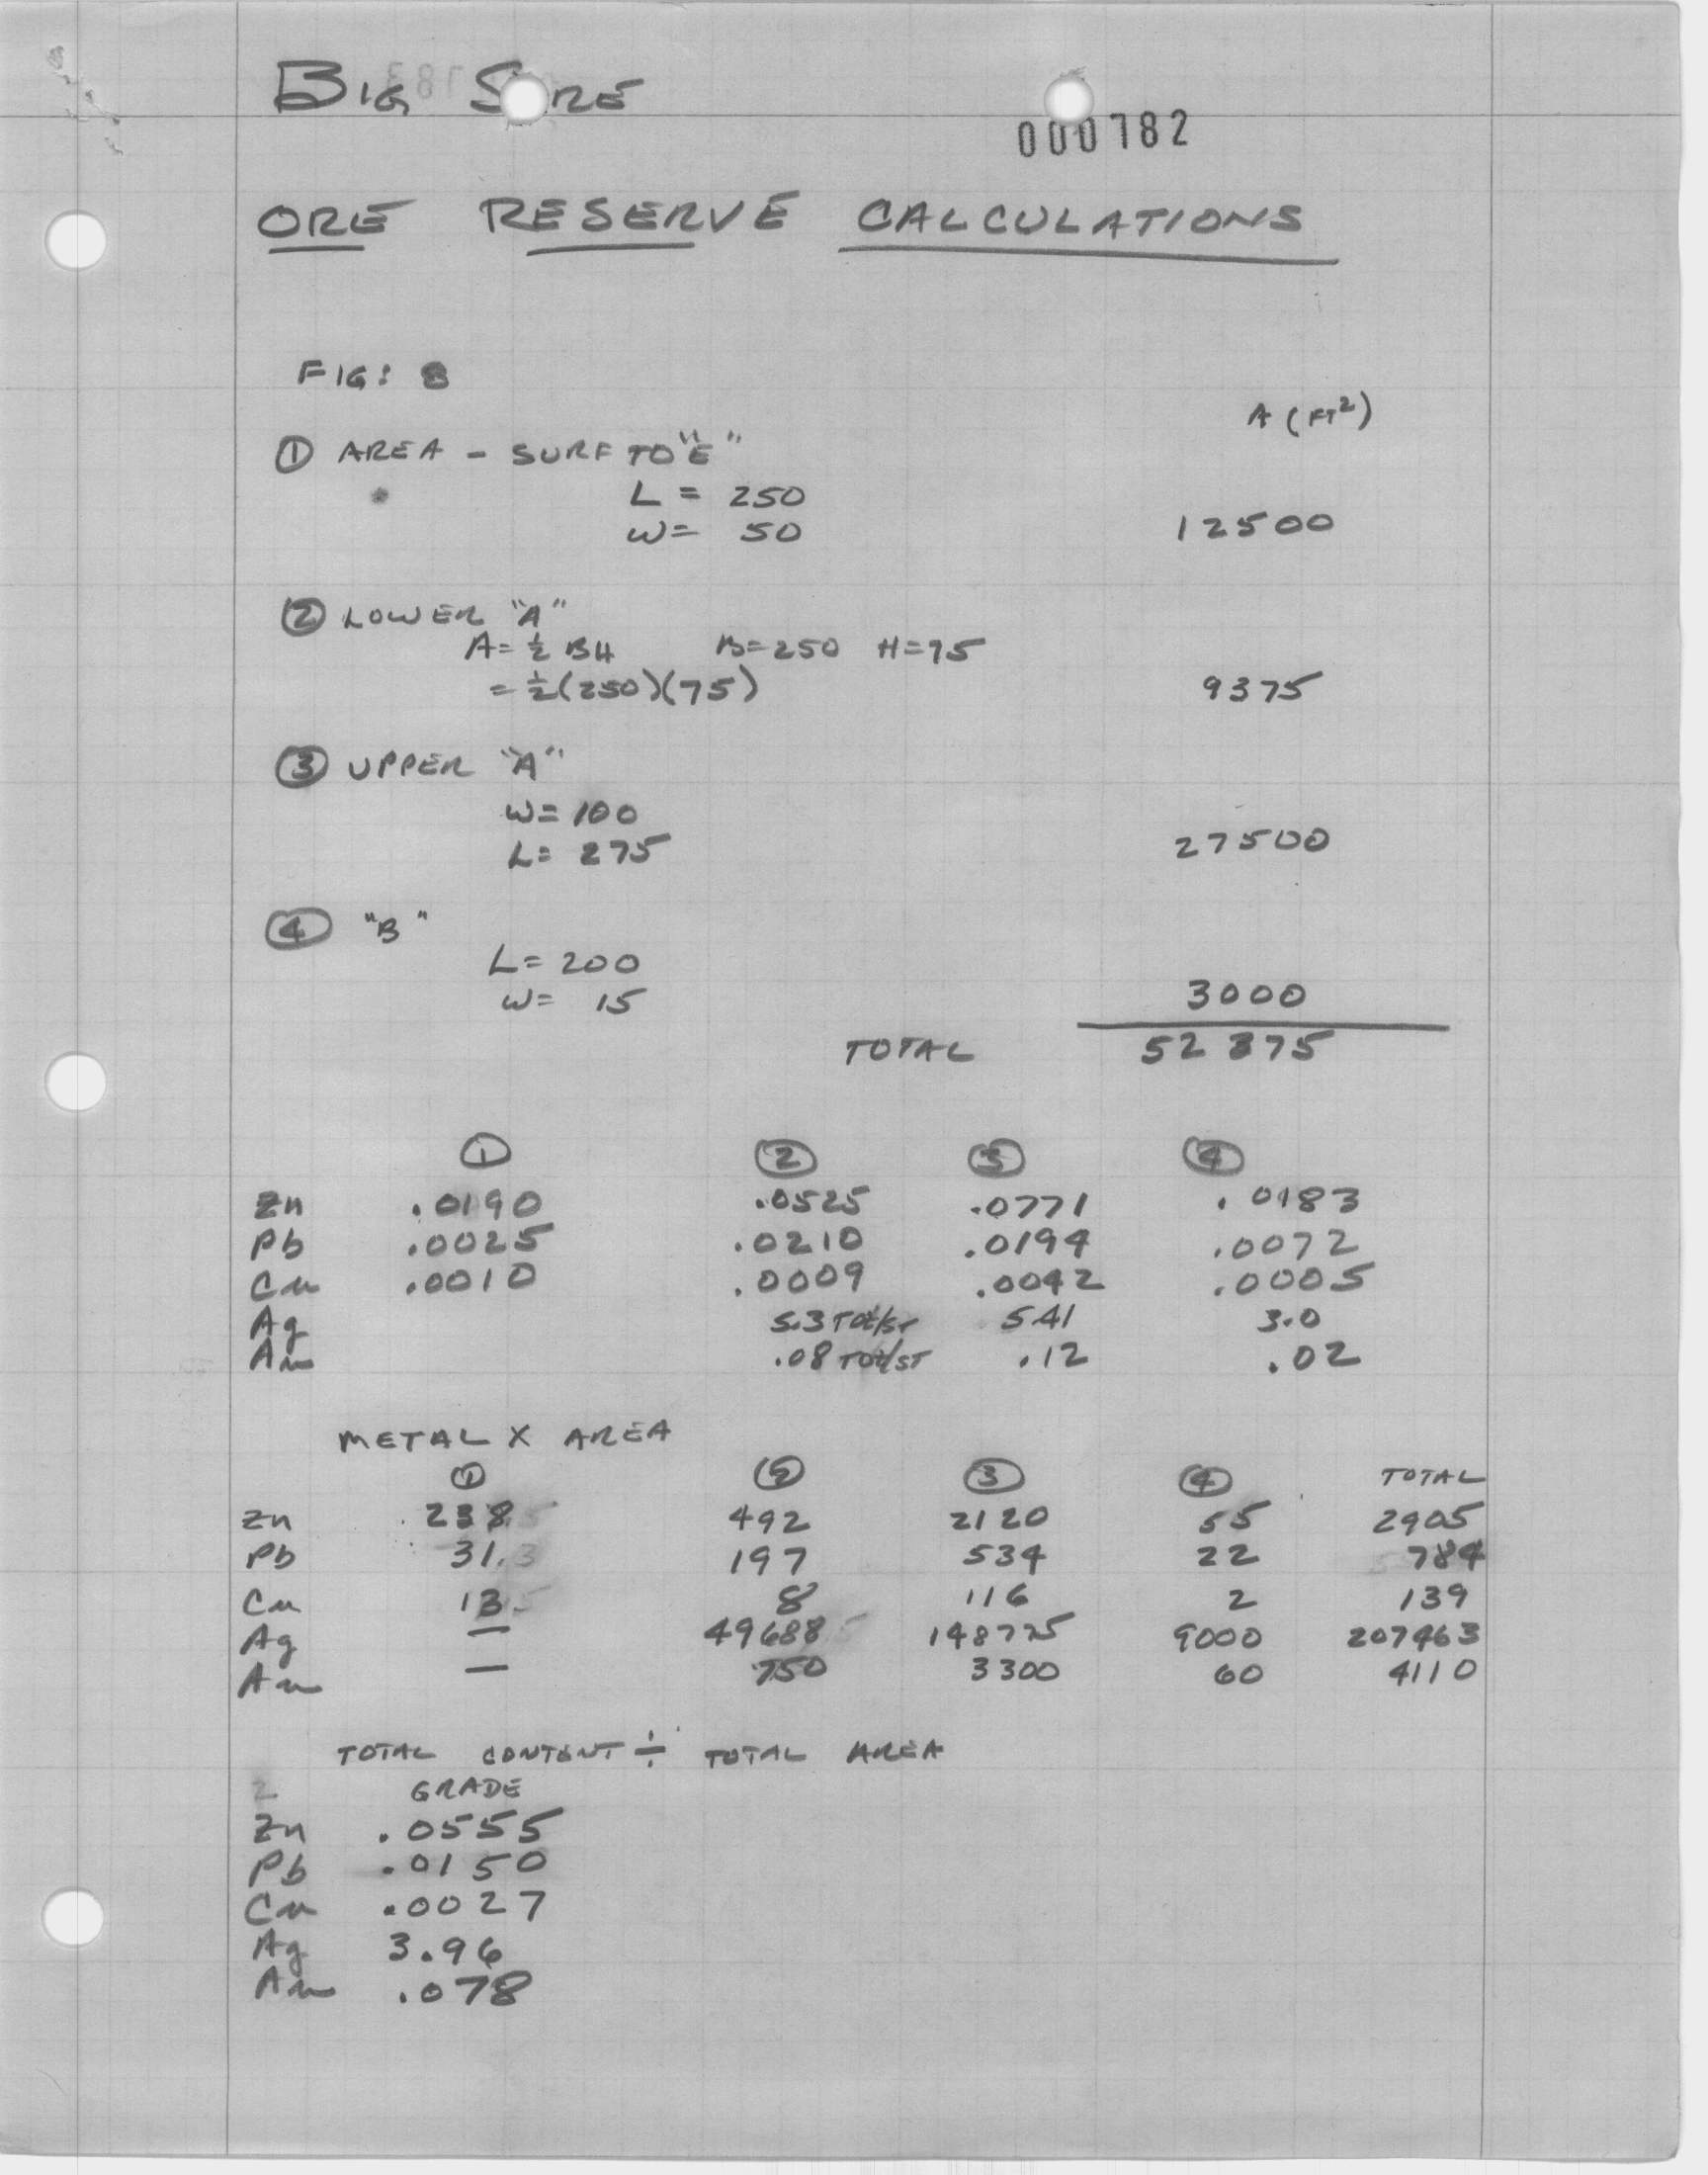 BIG SORE
000782
ORE RESERVE CALCULATIONS
FIG: 8
A (FT²)
① AREA - SURF TO "E"
L = 250
W = 50 12500
② LOWER "A"
A = ½ BH B = 250 H = 75
= ½(250)(75) 9375
③ UPPER "A"
W = 100
L = 275 27500
④ "B"
L = 200
W = 15 3000
TOTAL 52375
① ② ③ ④
Zn .0190 .0525 .0771 .0183
Pb .0025 .0210 .0194 .0072
Cu .0010 .0009 .0042 .0005
Ag 5.3 TOZ/ST 5.41 3.0
Au .08 TOZ/ST .12 .02
METAL X AREA
① ② ③ ④ TOTAL
Zn 238 492 2120 55 2905
Pb 31.3 197 534 22 784
Cu 13 8 116 2 139
Ag — 49688 148775 9000 207463
Au — 750 3300 60 4110
TOTAL CONTENT ÷ TOTAL AREA
GRADE
Zn .0555
Pb .0150
Cu .0027
Ag 3.96
Au .078